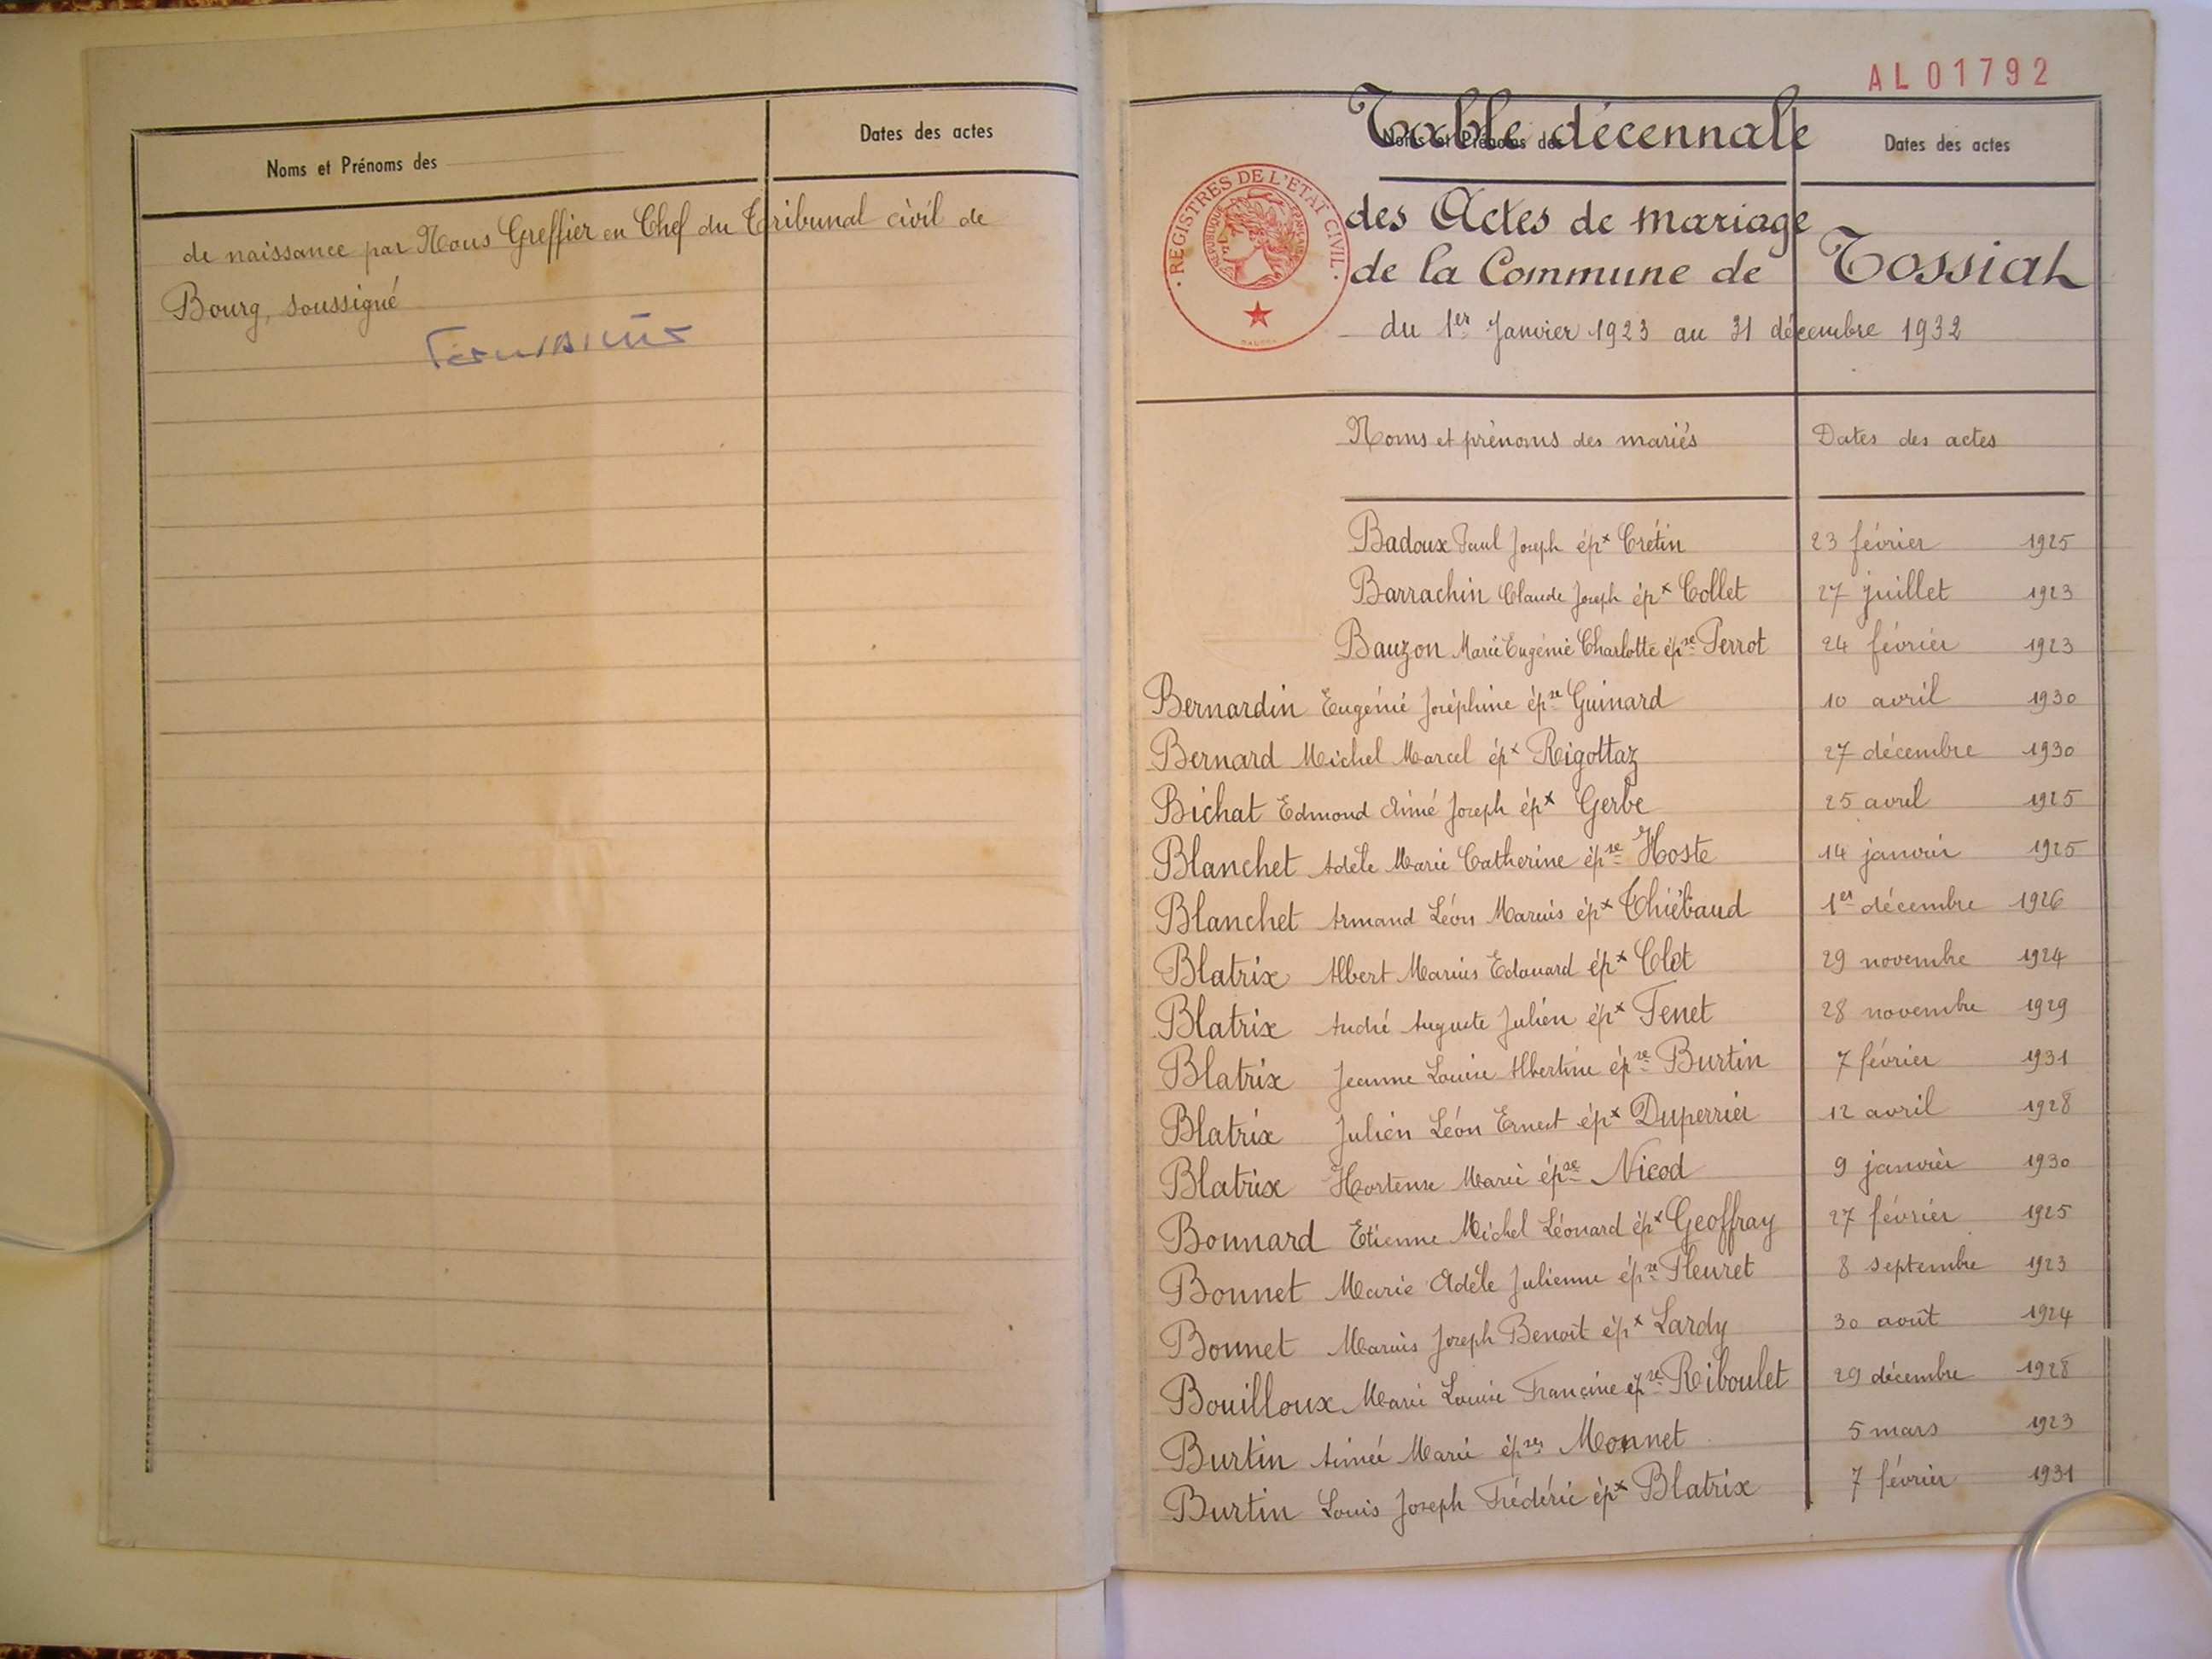 Noms et Prénoms des
Dates des actes
de naissance par Nous Greffier en Chef du Tribunal civil de
Bourg, soussigné
AL01792
Noms et Prénoms des
Table décennale
Dates des actes
REGISTRES DE L'ETAT CIVIL
REPUBLIQUE FRANÇAISE
des Actes de mariage
de la Commune de Tossiat
du 1er Janvier 1923 au 31 décembre 1932
Noms et prénoms des mariés Dates des actes
Badoux Paul Joseph épx Crétin 23 février 1925
Barrachin Claude Joseph épx Collet 27 juillet 1923
Bauzon Marie Eugénie Charlotte épse Perrot 24 février 1923
Bernardin Eugénie Joséphine épse Guinard 10 avril 1930
Bernard Michel Marcel épx Rigottaz 27 décembre 1930
Bichat Edmond Aimé Joseph épx Gerbe 25 avril 1925
Blanchet Adèle Marie Catherine épse Hoste 14 janvier 1925
Blanchet Armand Léon Marius épx Thiébaud 1er décembre 1926
Blatrix Albert Marius Edouard épx Clot 29 novembre 1924
Blatrix André Auguste Julien épx Tenet 28 novembre 1929
Blatrix Jeanne Louise Albertine épse Burtin 7 février 1931
Blatrix Julien Léon Ernest épx Duperrier 12 avril 1928
Blatrix Hortense Marie épse Nicod 9 janvier 1930
Bonnard Etienne Michel Léonard épx Geoffray 27 février 1925
Bonnet Marie Adèle Julienne épse Fleuret 8 septembre 1923
Bonnet Marius Joseph Benoît épx Lardy 30 août 1924
Bouilloux Marie Louise Francine épse Riboulet 29 décembre 1928
Burtin Aimée Marie épse Monnet 5 mars 1923
Burtin Louis Joseph Frédéric épx Blatrix 7 février 1931